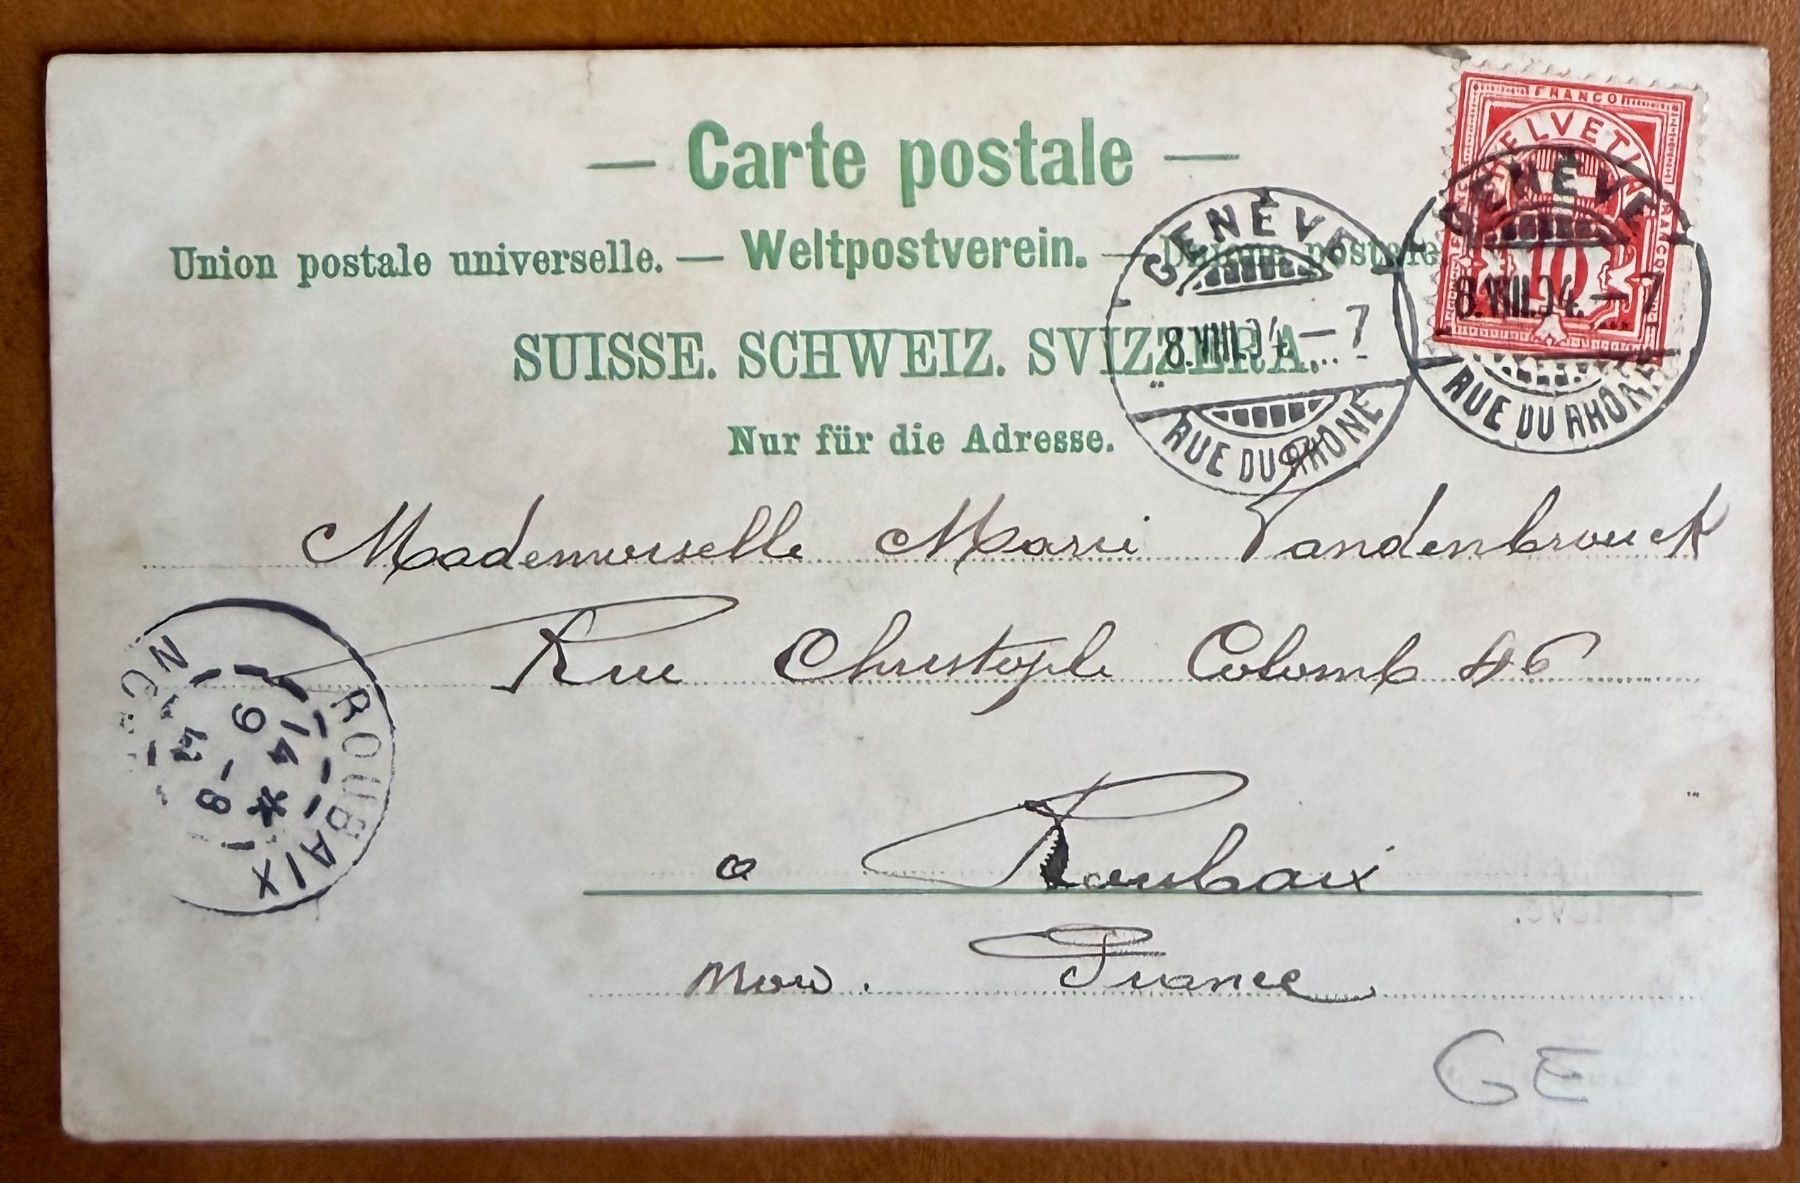 — Carte postale —
FRANCO
HELVETIA
10
Union postale universelle. — Weltpostverein. — Unione postale
GENÈVE
8.VIII.04.–7
RUE DU RHÔNE
GENÈVE
8.VIII.04.–7
RUE DU RHÔNE
SUISSE. SCHWEIZ. SVIZZERA.
Nur für die Adresse.
Mademoiselle Marie Vandenbrouck
Rue Christophe Colomb 46
ROUBAIX
14 *
9 -8
NORD
a Roubaix
Nord. France
GE